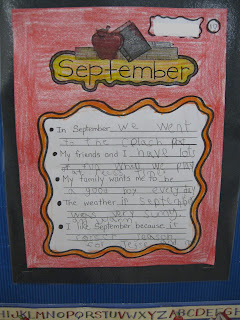 September
In September we went
to the splach pad
My friends and I have lots
of fun when we play
My family wants me to be
a good boy every day
The weather in september
was very sunny
I like September because it
HIJKLMNOPQRSTUVWXYZABCDEFGH